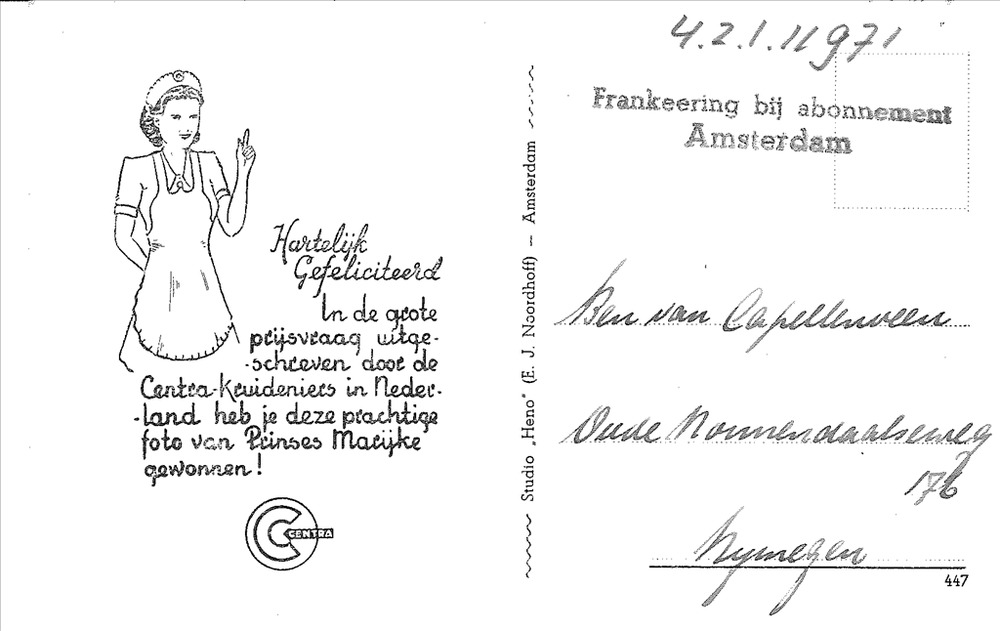 4.2.1.11971
Frankeering bij abonnement
Amsterdam
Hartelijk
Gefeliciteerd
In de grote
prijsvraag uitge-
-schreven door de
Centra-Kruideniers in Neder-
-land heb je deze prachtige
foto van Prinses Marijke
gewonnen!
C CENTRA
Studio „Heno" (E. J. Noordhoff) — Amsterdam
Ben van Capellenveen
Oude Nonnendaalseweg
176
Nymegen
447